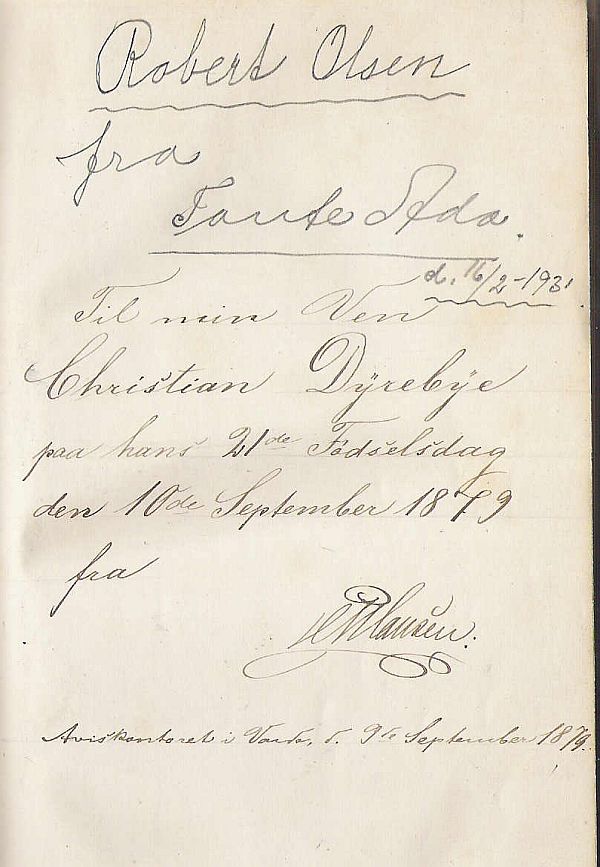 Robert Olsen
fra
Tante Ada.
d. 16/2-1931.
Til min Ven
Christian Dÿrebÿe
paa hans 21de Fødselsdag
den 10de September 1879
fra
Hansen.
Aviskontoret i Varde, d. 9de September 1879.